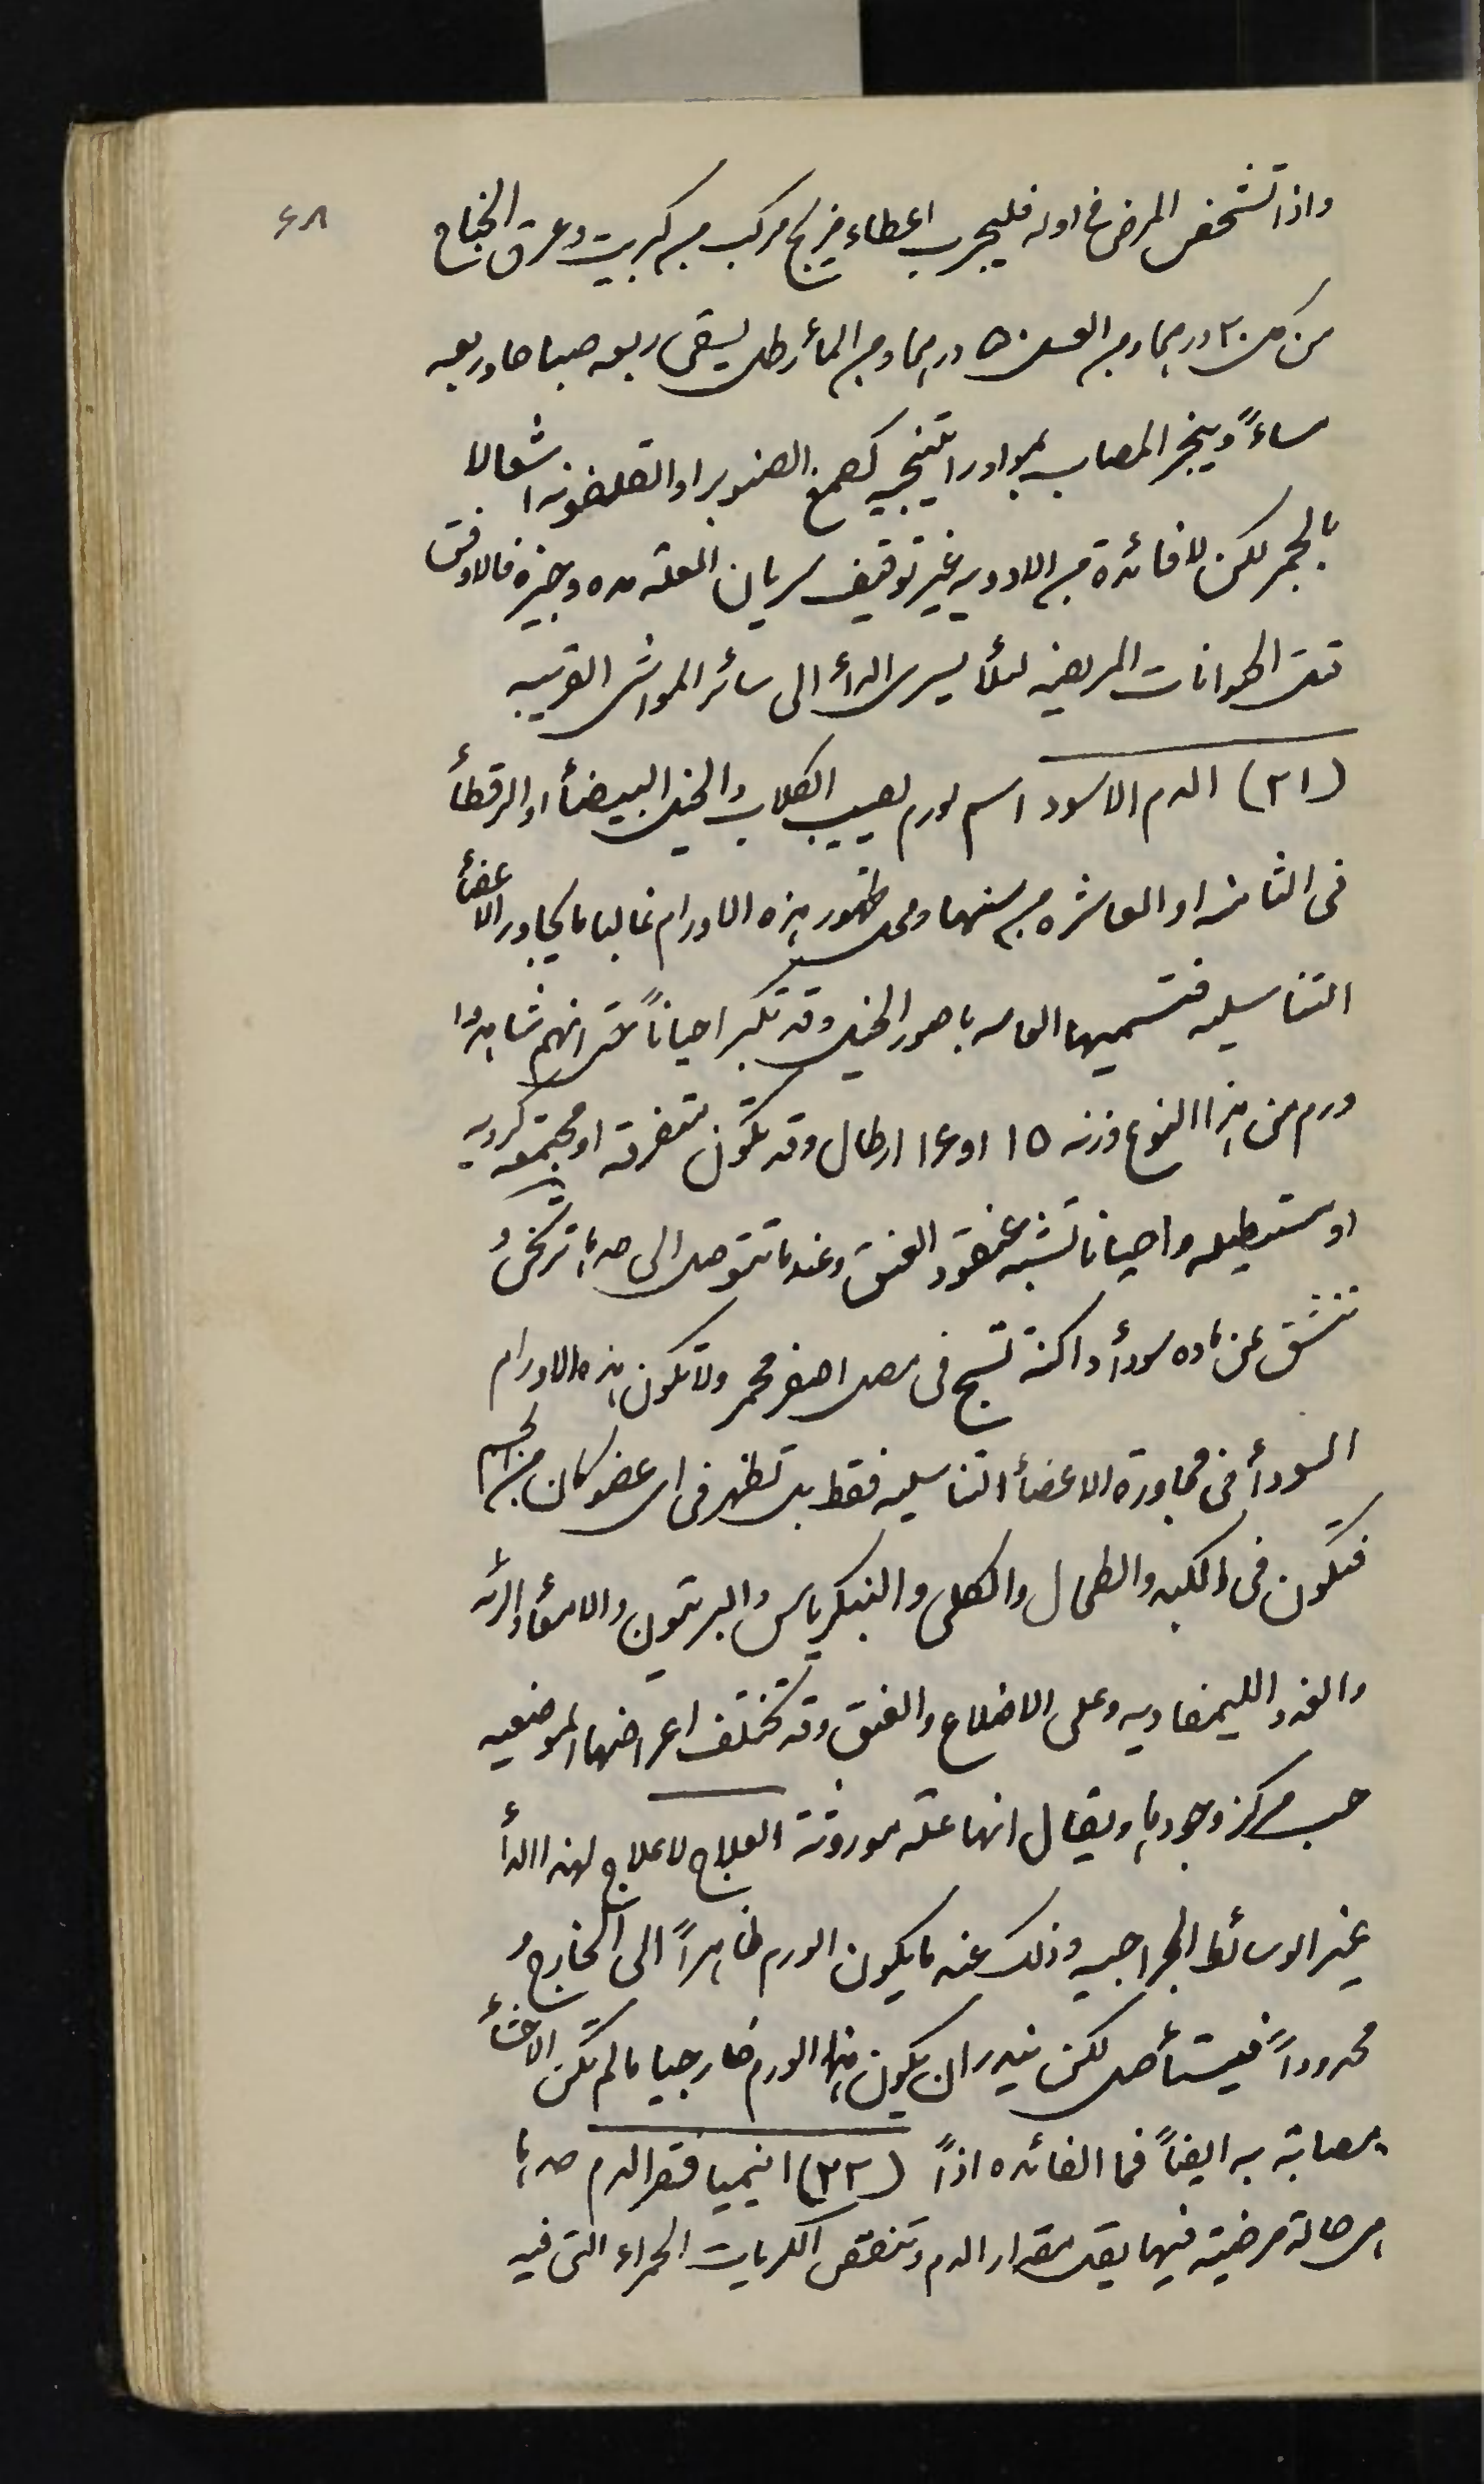 ٤٨
واذا تشخص المرض في اوله فليجرب اعطاء مزيج مركب من كبريت وعرق الجناح
من كل ٢٠ درهما ومن العسل ٥٠ درهما ومن المأ رطل يسقى ربعه صباحا وربعه
مساءً ويبخر المصاب بمواد راتينجيه كصمغ الصنوبر او القلفونه اشعالا
بالجمر لكن لا فائدة من الادويه غير توقيف سريان العلة مده وجيزه فالاوفق
قتل الحيوانات المريضه لئلا يسري الدأ الى سائر المواشي القريبه
(٢١) الدم الاسود اسم لورم يصيب الكلاب والخيل البيضأ او الرقطأ
في الثامنه او العاشره من سنها ومحل ظهور هذه الاورام غالبا ما يجاور الاعضأ
التناسليه فتسميها العامه باصور الخيل وقد تكبر احياناً حتى انهم شاهدوا
ورم من هذا النوع وزنه ١٥ او ١٤ ارطال وقد تكون متفرقه او مجتمعه كرويه
او مستطيله واحيانا تشبه عنقود العنق وعندما تتوصل الى حدها ترتخي و
تنشق عن ماده سودأ داكنة تسبح في مصل اصفر محمر ولا تكون هذه الاورام
السودأ في مجاورة الاعضأ التناسليه فقط بل تظهر في اي عضو كان من الجسم
فتكون في الكبد والطحال والكلى والبنكرياس والبريتون والامعأ والرئه
والغدد الليمفاويه وعلى الاضلاع والعنق وقد تختلف اعراضها الموضعيه
حسب مركز وجودها ويقال انها علة موروثة العلاج لا علاج لهذا الدأ
غير الوسائط الجراحيه وذلك عندما يكون الورم ظاهراً الى الخارج و
محدوداً فيستأصل لكن يندر ان يكون هذا الورم خارجيا ما لم تكن الاحشأ
مصابة به ايضاً فما الفائده اذاً (٢٢) انيميا فقر الدم حدها
هي حالة مرضية فيها يقل مقدار الدم وتنقص الكريات الحمراء التي فيه